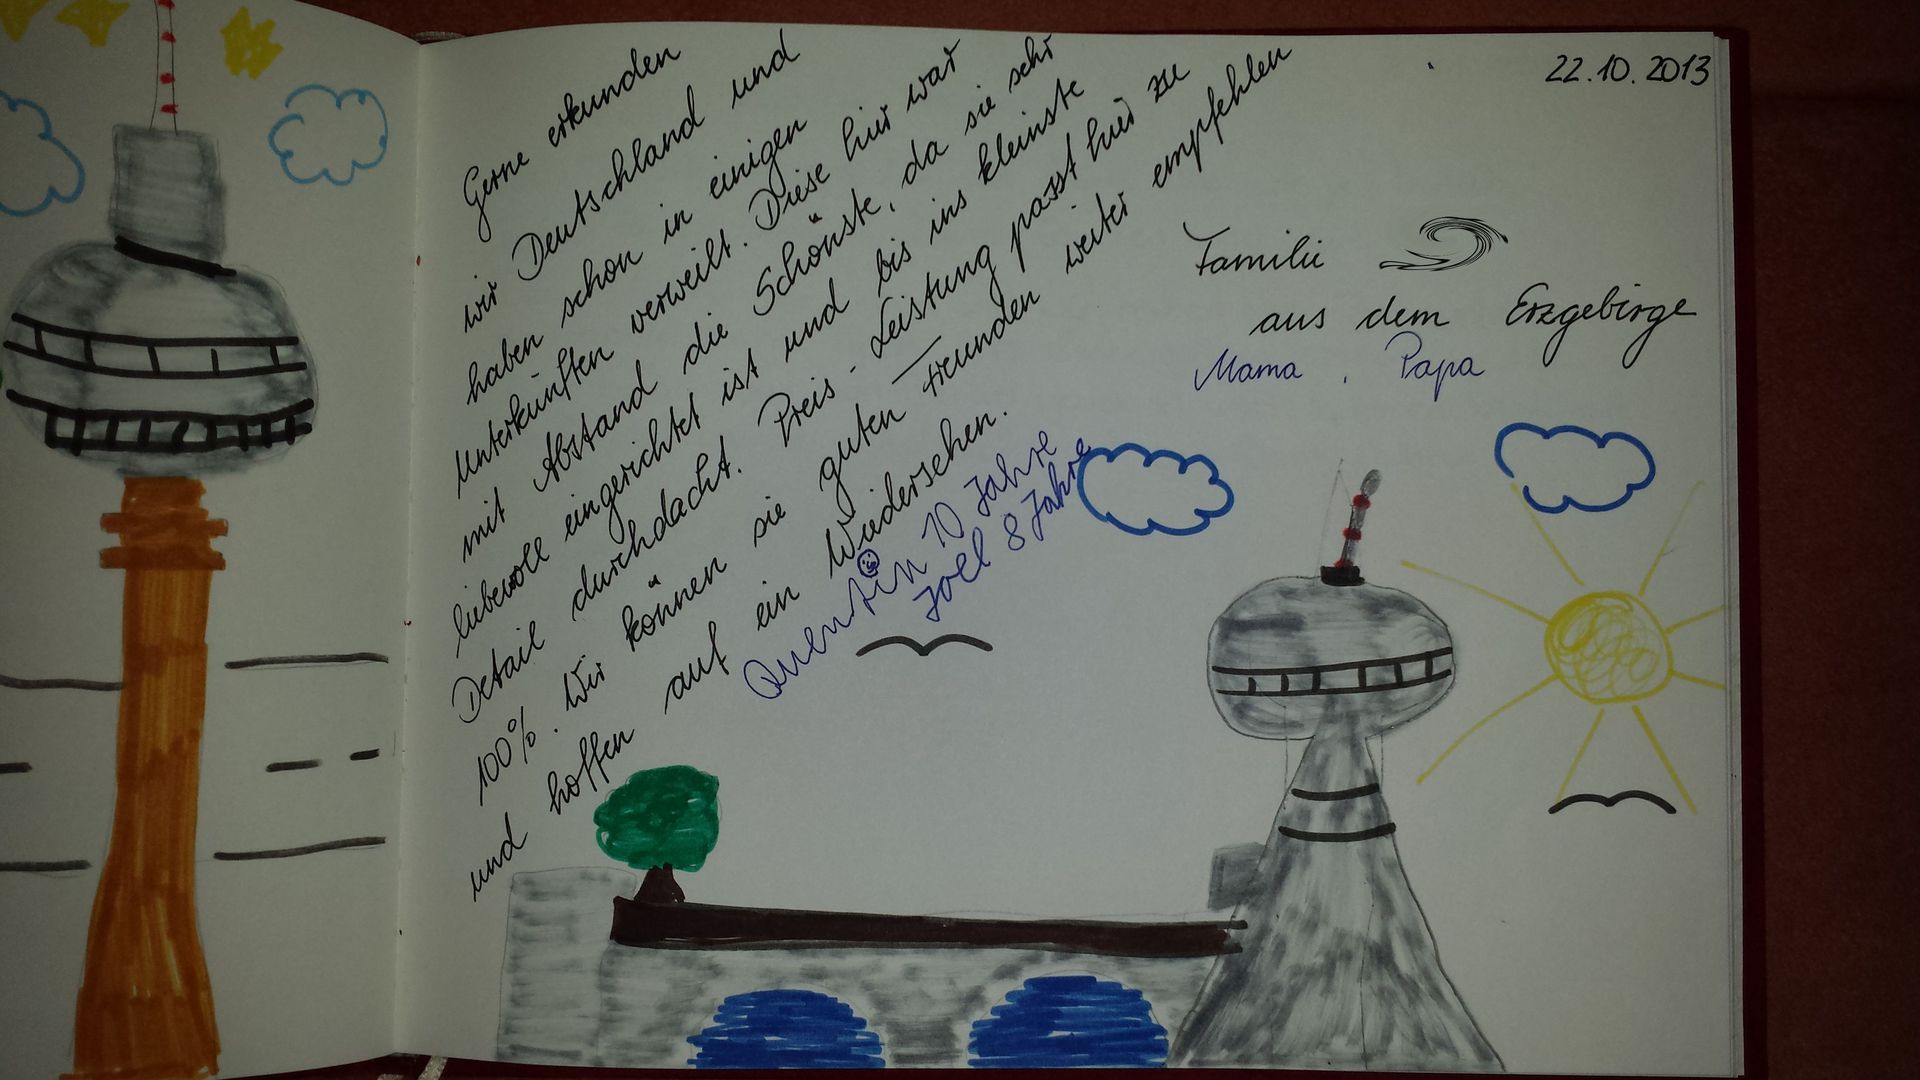 22.10.2013
Gerne erkunden
wir Deutschland und
haben schon in einigen
Unterkünften verweilt. Diese hier war
mit Abstand die Schönste, da sie sehr
liebevoll eingerichtet ist und bis ins kleinste
Detail durchdacht. Preis-Leistung passt hier zu
100%. Wir können sie guten Freunden weiter empfehlen
und hoffen auf ein Wiedersehen.
Quentin 10 Jahre
Joel 8 Jahre
Familie
aus dem Erzgebirge
Mama, Papa